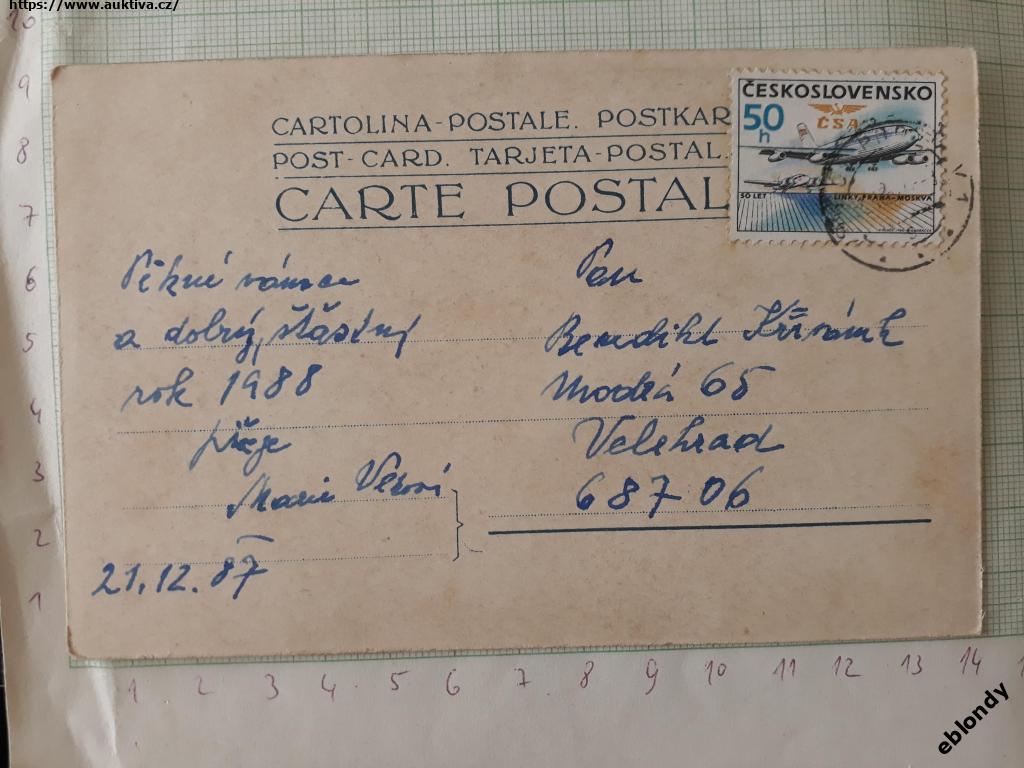 https://www.auktiva.cz/
CARTOLINA-POSTALE. POSTKAR
POST-CARD. TARJETA-POSTAL.
CARTE POSTAL
ČESKOSLOVENSKO
50
h
ČSA
50 LET
LINKY PRAHA-MOSKVA
Pěkné vánoce
a dobrý, šťastný
rok 1988
přeje
Marie
21.12.87
Pan
Benedikt
Modrá 65
Velehrad
687 06
10
9
8
7
6
5
4
3
2
1
1 2 3 4 5 6 7 8 9 10 11 12 13 14
eblondy